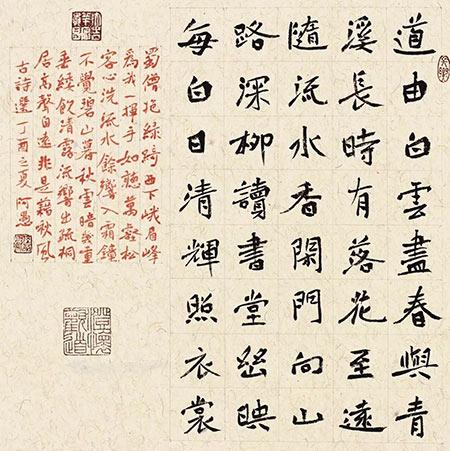 道由白雲盡春與青
溪長時有落花至遠
隨流水香閑門向山
路深柳讀書堂幽映
每白日清輝照衣裳
蜀僧抱綠綺西下峨眉峰
爲我一揮手如聽萬壑松
客心洗流水餘響入霜鐘
不覺碧山暮秋雲暗幾重
垂緌飲清露流響出疏桐
居高聲自遠非是藉秋風
古詩選丁酉之夏阿愚
澄懷
觀道